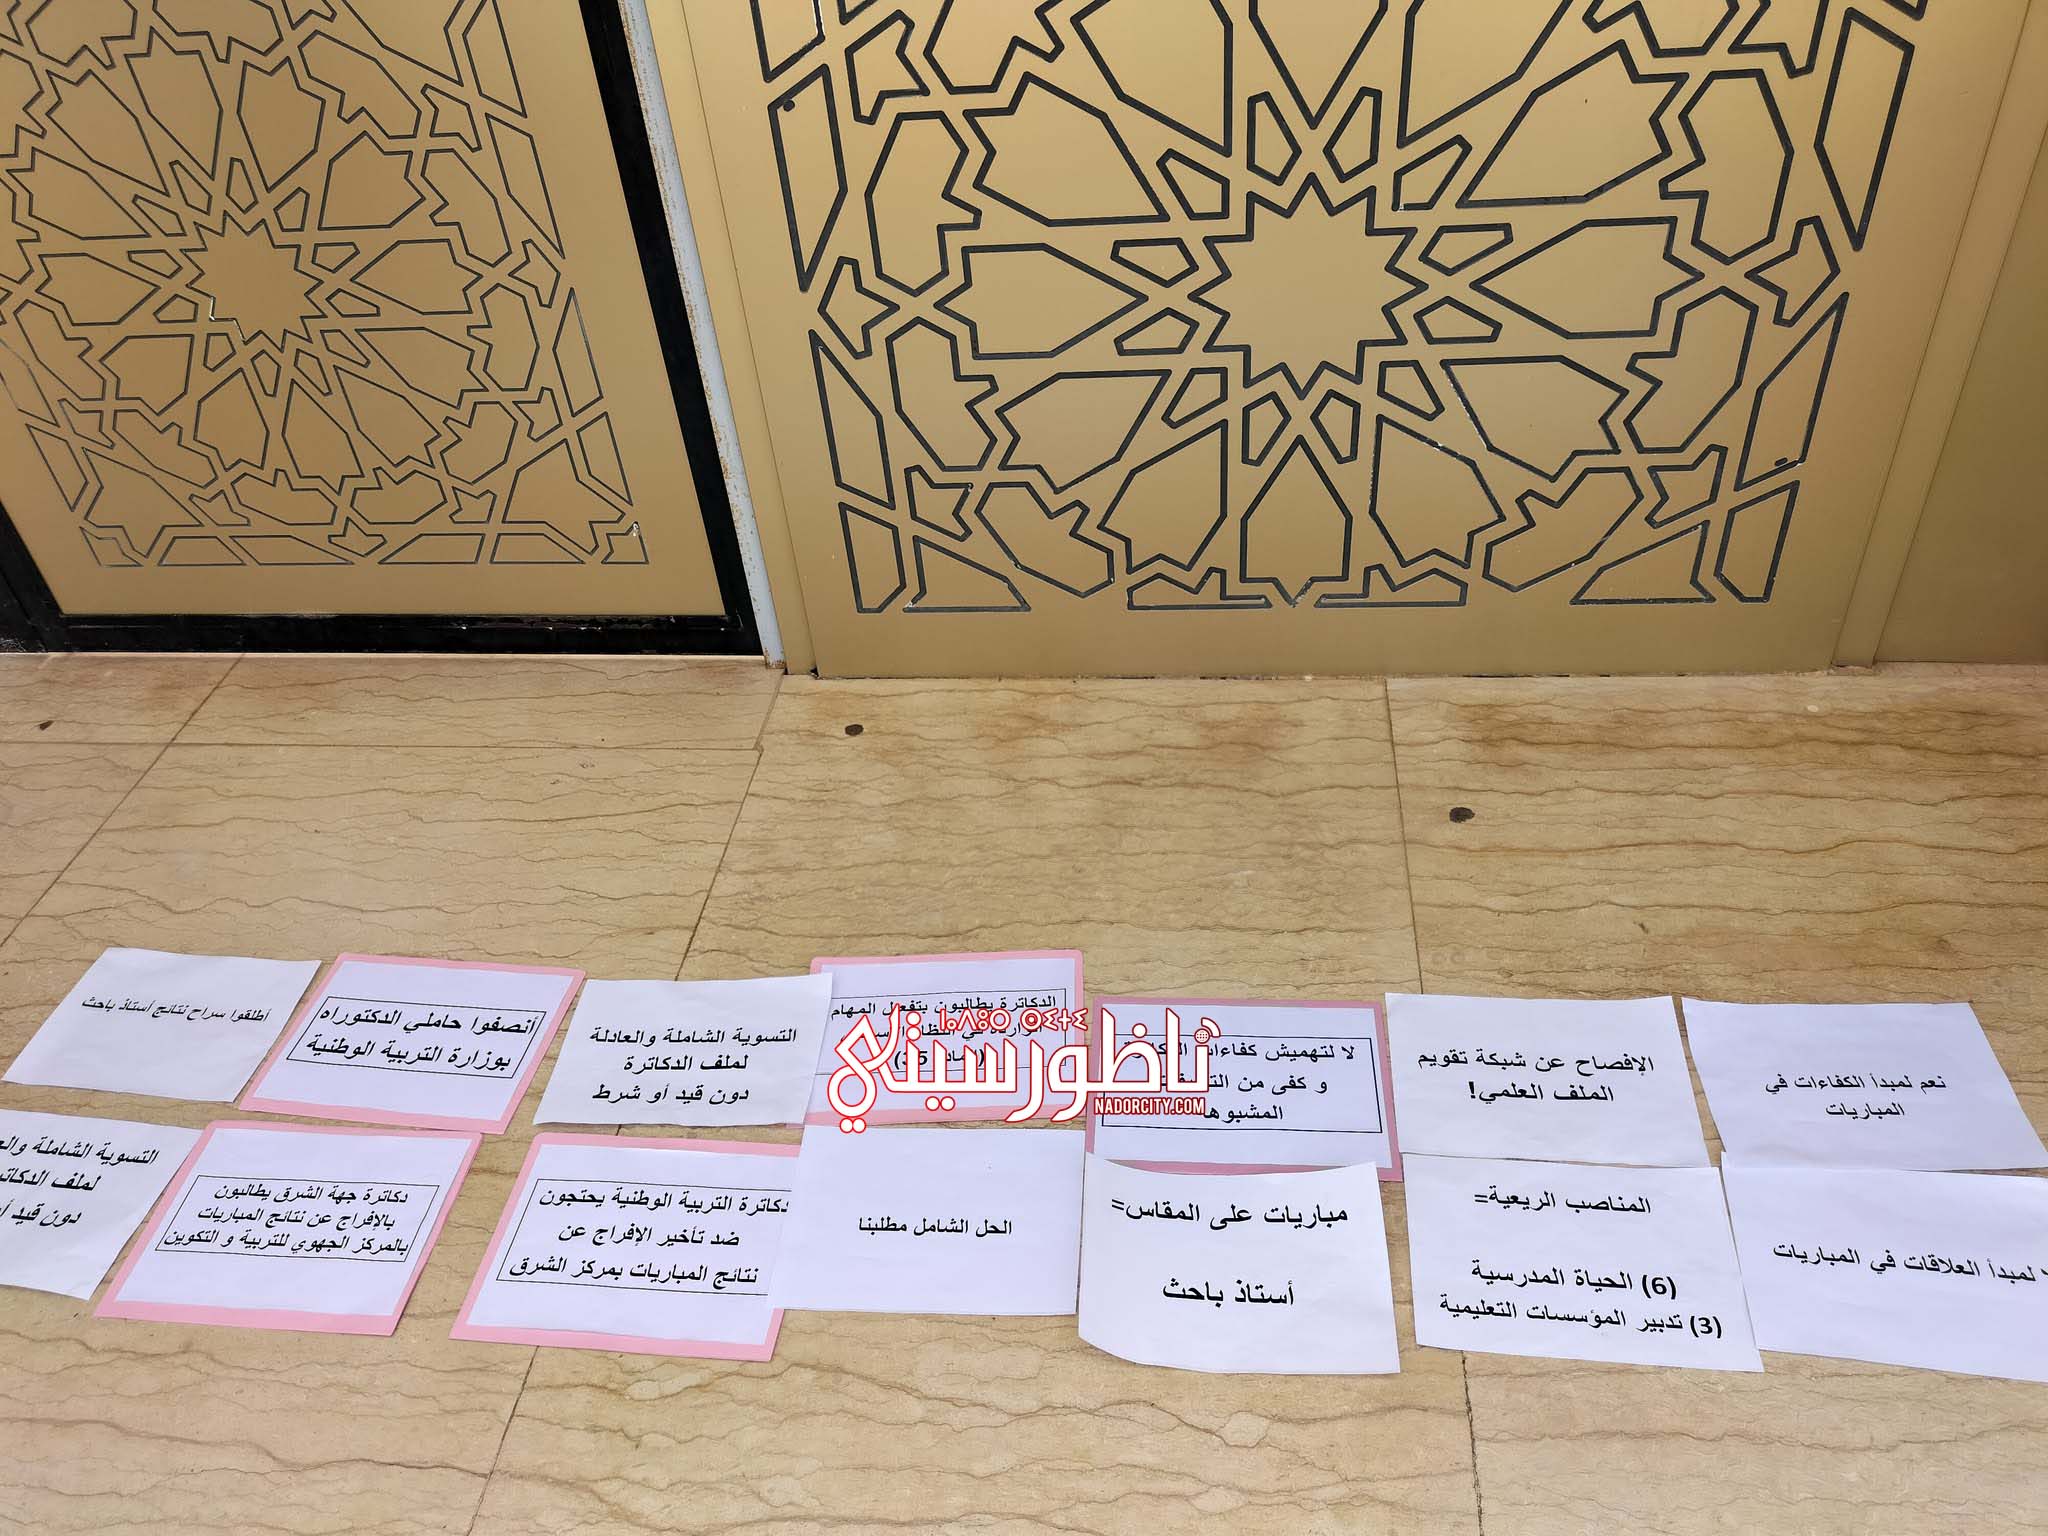 أطلقوا سراح نتائج أستاذ باحث
أنصفوا حاملي الدكتوراه
بوزارة التربية الوطنية
التسوية الشاملة والعادلة
لملف الدكاترة
دون قيد أو شرط
الدكاترة يطالبون بتفعيل المهام
لا لتهميش كفاءات
و كفى من
الإفصاح عن شبكة تقويم
الملف العلمي!
نعم لمبدأ الكفاءات في
المباريات
التسوية الشاملة
لملف
دون قيد
دكاترة جهة الشرق يطالبون
بالإفراج عن نتائج المباريات
بالمركز الجهوي للتربية و التكوين
دكاترة التربية الوطنية يحتجون
ضد تأخير الإفراج عن
نتائج المباريات بمركز الشرق
الحل الشامل مطلبنا
مباريات على المقاس=
أستاذ باحث
المناصب الريعية=
(6) الحياة المدرسية
(3) تدبير المؤسسات التعليمية
لمبدأ العلاقات في المباريات
ⵏⴰⴷⵓⵔ ⵙⵉⵜⵉ
ناظورسيتي
NADORCITY.COM